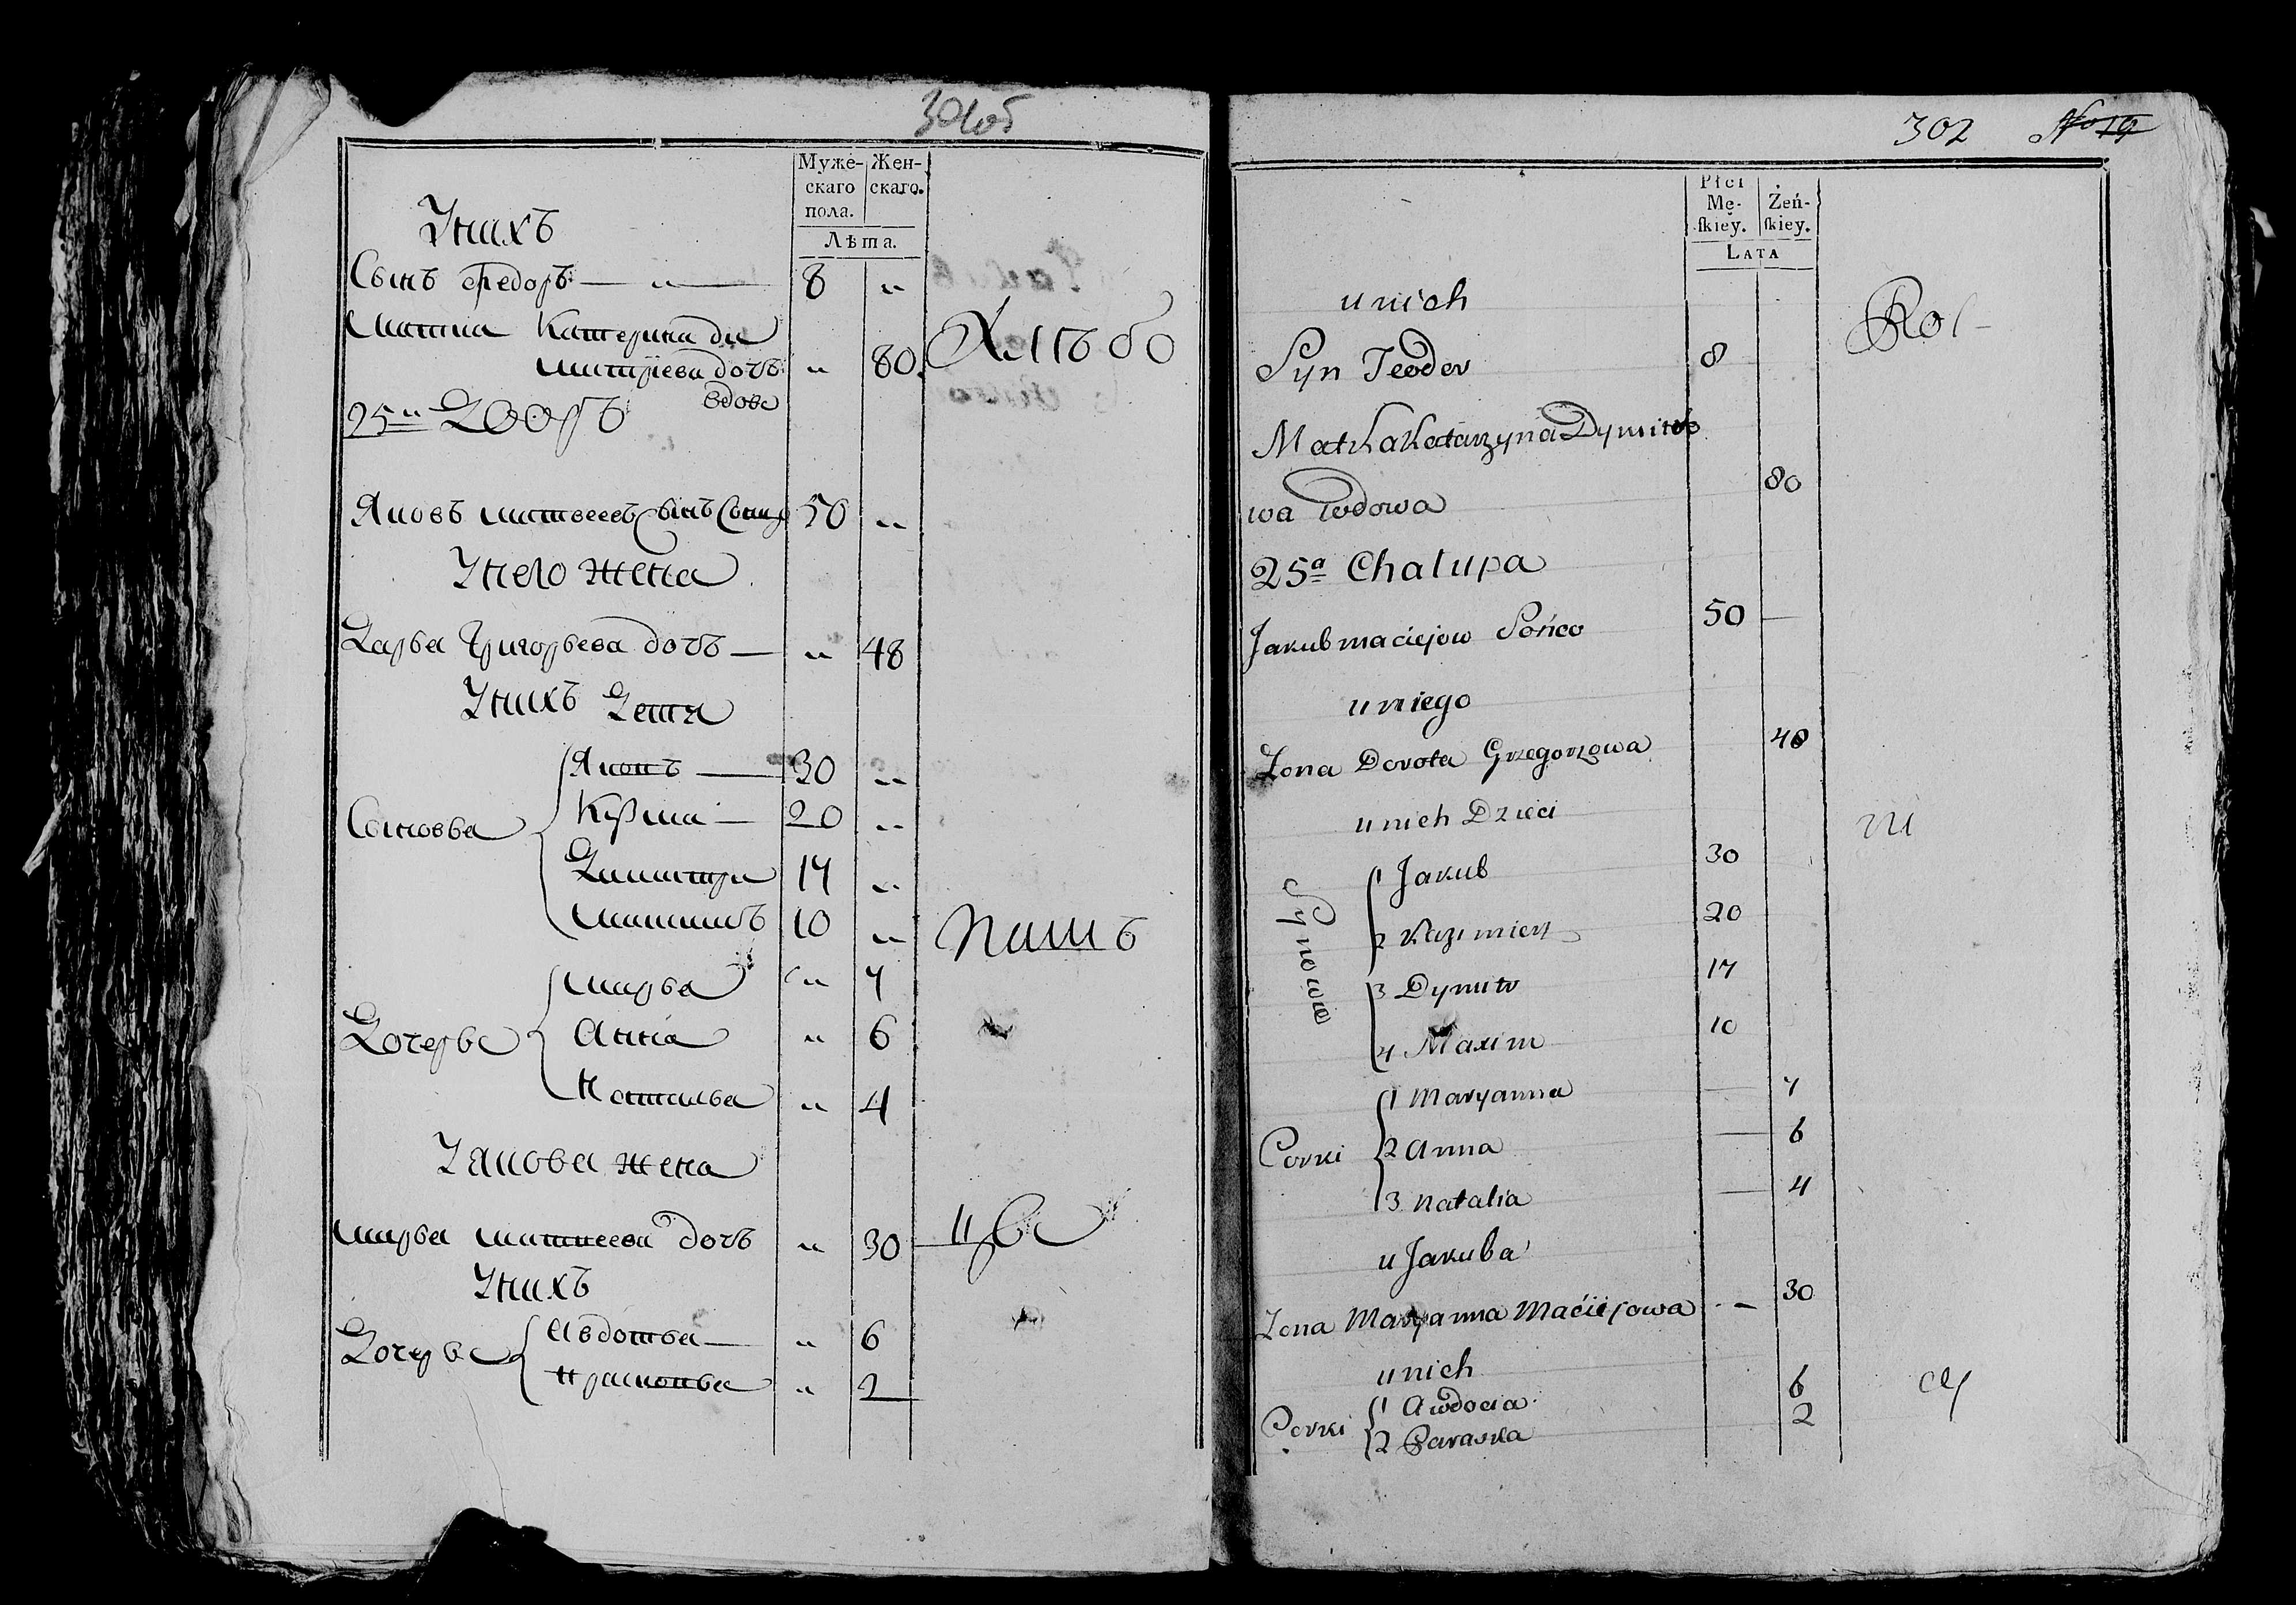 301об
Муже-
скаго
пола.
Жен-
скаго.
Лѣта.
Унихъ
Сынъ Федоръ — „ — 8 „
Матка Катерина Ди
митріева дочь „ 80
вдова
Хлѣбо
25й Дворъ
Яковъ Матвеевъ Сынъ 50 „
Унего жена
Дарья Григорьева дочь — „ 48
Унихъ Дети
Сыновья
Яковъ — 30 „
Кузма — 20 „
Дмитри 17 „
Максимъ 10 „
Пашъ
Дочерье
Марья „ 7
Анна „ 6
Наталья „ 4
Уякова жена
Марья Матвеева дочь „ 30
Унихъ
Дочерье
Авдотья — „ 6
Прасковья „ 2
302 No 19
Płci
Mę-
skiey.
Żeń-
skiey.
LATA
u nich
Rol-
Syn Teodor 8
Matka Katarzyna Dymitro
wa Wdowa 80
25a Chalupa
Jakub Maciejow 50 —
u niego
Zona Dorota Grzegorzowa 48
u nich Dzieci
ni
Synowie
1 Jakub 30
2 Kazimierz 20
3 Dymitr 17
4 Maxim 10
Corki
1 Maryanna — 7
2 Anna — 6
3 Natalia — 4
u Jakuba
Zona Maryanna Maciejowa — 30
u nich
Corki
1 Awdocia 6
2 Paraska 2
cy